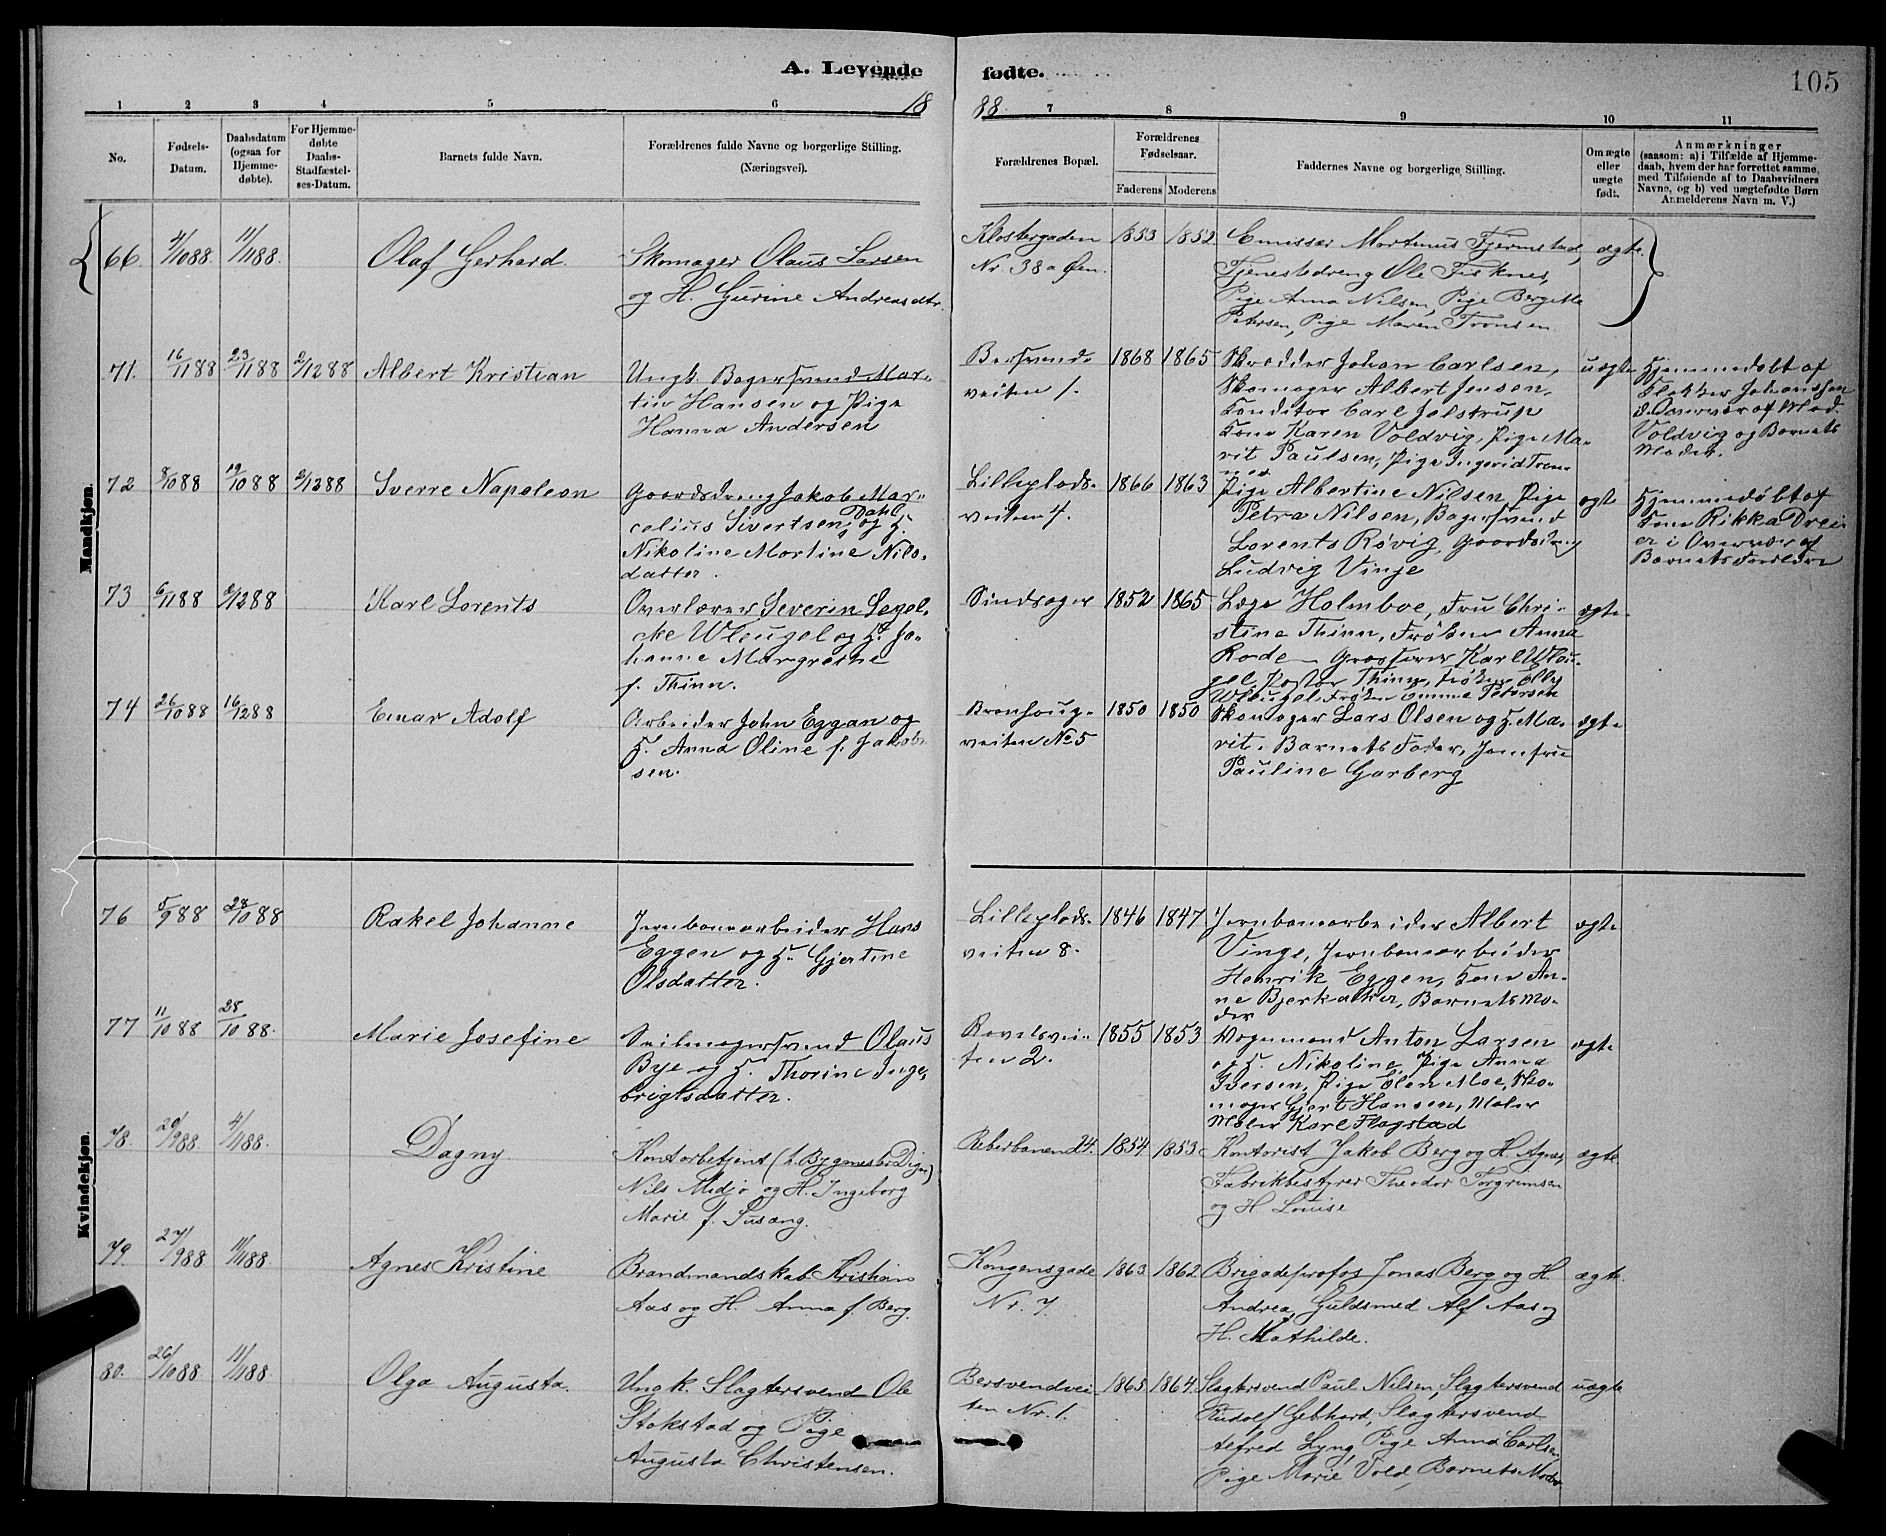 A. Levende fødte. 105
18 88.
1 2 3 4 5 6 7 8 9 10 11
No.
Fødsels-
Datum.
Daabsdatum
(ogsaa for
Hjemme-
døbte).
For Hjemme-
døbte
Daabs-
Stadfæstel-
ses-Datum.
Barnets fulde Navn.
Forældrenes fulde Navne og borgerlige Stilling.
(Næringsvei).
Forældrenes Bopæl.
Forældrenes
Fødselsaar.
Faderens Moderens
Faddernes Navne og borgerlige Stilling.
Om ægte
eller
uægte
født.
Anmærkninger
(saasom: a) i Tilfælde af Hjemme-
daab, hvem der har forrettet samme,
med Tilføiende af to Daabsvidners
Navne, og b) ved uægtefødte Børn
Anmelderens Navn m. V.)
Mandkjøn.
66. 4/1088. 11/1188. Olaf Gerhard.
Skomager Olaus Larsen
og H. Gurine Andreasdtr.
Klostergaden
Nr. 38a Øen.
1853 1852
Emissær Mortinus Fjermstad,
Tjenestedreng Ole Fisknes,
Pige Anna Nilsen, Pige Bergitte
Petersen, Pige Maren Tronsen.
ægte.
71. 16/1188 23/1188 2/1288 Albert Kristian
Ungk. Bagersvend Mar-
tin Hansen og Pige
Hanna Andersen
Bersvends-
veiten 1.
1868 1865
Skrædder Johan Carlsen,
Skomager Albert Jensen,
Konditor Carl Jelstrup
Kone Karen Voldvig, Pige Ma-
rit Paulsen, Pige Ingerid Tron-
uægte
Hjemmedøbt af
Klokker Johanssen
i Overvær af Mad.
Voldvig og Barnets
Moder.
72 8/1088 19/1088 2/1288 Sverre Napoleon
Gaardsdreng Jakob Mar-
celius Sivertsen Dahl og H.
Nikoline Martine Nils-
datter.
Lilleplads-
veiten 4.
1866 1863
Pige Albertine Nilsen, Pige
Petra Nilsen, Bagersvend
Lorents Røvig, Gaardsdreng
Ludvig Vinje
ægte
Hjemmedøbt af
Kone Rikka Drei-
er i Overvær af
Barnets Forældre
73 6/1188 2/1288 Karl Lorents
Overlærer Severin Segel-
cke Wleugel og H. Jo-
hanne Margrethe
f. Thinn.
Sindsager
1852 1865
Læge Holmboe, Fru Chri-
stine Thinn, Frøken Anna
Rode, Grosserer Karl Wleu-
gel, Pastor Thinn, Frøken Elly
Wleugel, Frøken Emma Petersen
ægte
74 26/1088 16/1288 Einar Adolf
Arbeider John Eggan og
H. Anna Oline f. Jakob-
sen.
Bronhoug-
veiten No 5
1850 1850
Skomager Lars Olsen og H. Ma-
rit. Barnets Fader, Jomfru
Pauline Garberg
ægte
Kvindekjøn.
76 5/988 28/1088 Rakel Johanne
Jernbanearbeider Hans
Eggen og H. Gjertine
Olsdatter.
Lilleplads-
veiten 8.
1846 1847
Jernbanearbeider Albert
Vinge, Jernbanearbeider
Henrik Eggen, Kone An-
ne Bjerkaker, Barnets Mo-
der
ægte
77 11/1088 28/1088. Marie Josefine
Seilmagersvend Olaus
Bye og H. Thorine Inge-
brigtsdatter.
Ravelsvei-
ten 2.
1855 1853
Vognmand Anton Larsen
og H. Nikoline, Pige Anna
Iversen, Pige Elen Moe, Sko-
mager Gjert Hansen, Maler
Maler Karl Flagstad
ægte
78. 20/988. 4/1188. Dagny
Kontorbetjent
Nils Midjo og H. Ingeborg
Marie f. Susang.
Reberbanen 24.
1854 1853
Kontorist Jakob Berg og H. Agnes,
Fabrikbestyrer Theodor Torgrimsen
og H. Louise
ægte
79. 27/988 11/1188. Agnes Kristine
Brandmandskab Kristian
Aas og H. Anna f. Berg.
Kongensgade
Nr. 7.
1863 1862
Brigadeprofos Jonas Berg og H.
Andrea, Guldsmed Alf Aas og
H. Mathilde.
ægte.
80. 26/1088 11/1188. Olga Augusta.
Ungk. Slagtersvend Ole
Stokstad og Pige
Augusta Christensen.
Bersvendvei-
ten Nr. 1.
1865 1864.
Slagtersvend Paul Nilsen, Slagtersvend
Rudolf Gebhard, Slagtersvend
Alfred Lyng, Pige Anna Carlsen,
Pige Marie Vold, Barnets Moder
uægte